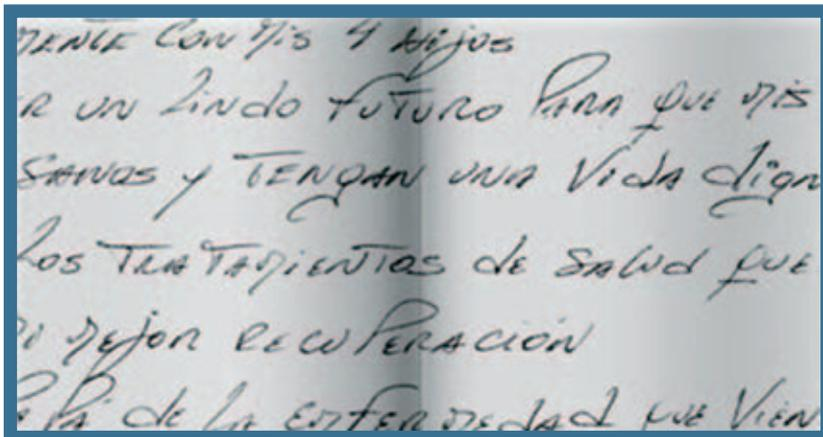 MENTE CON MIS 4 HIJOS
R UN LINDO FUTURO PARA QUE MIS
SANOS Y TENGAN UNA VIDA DIGN
LOS TRATAMIENTOS DE SALUD QUE
MI MEJOR RECUPERACIÓN
PÁ DE LA ENFERMEDAD QUE VIEN